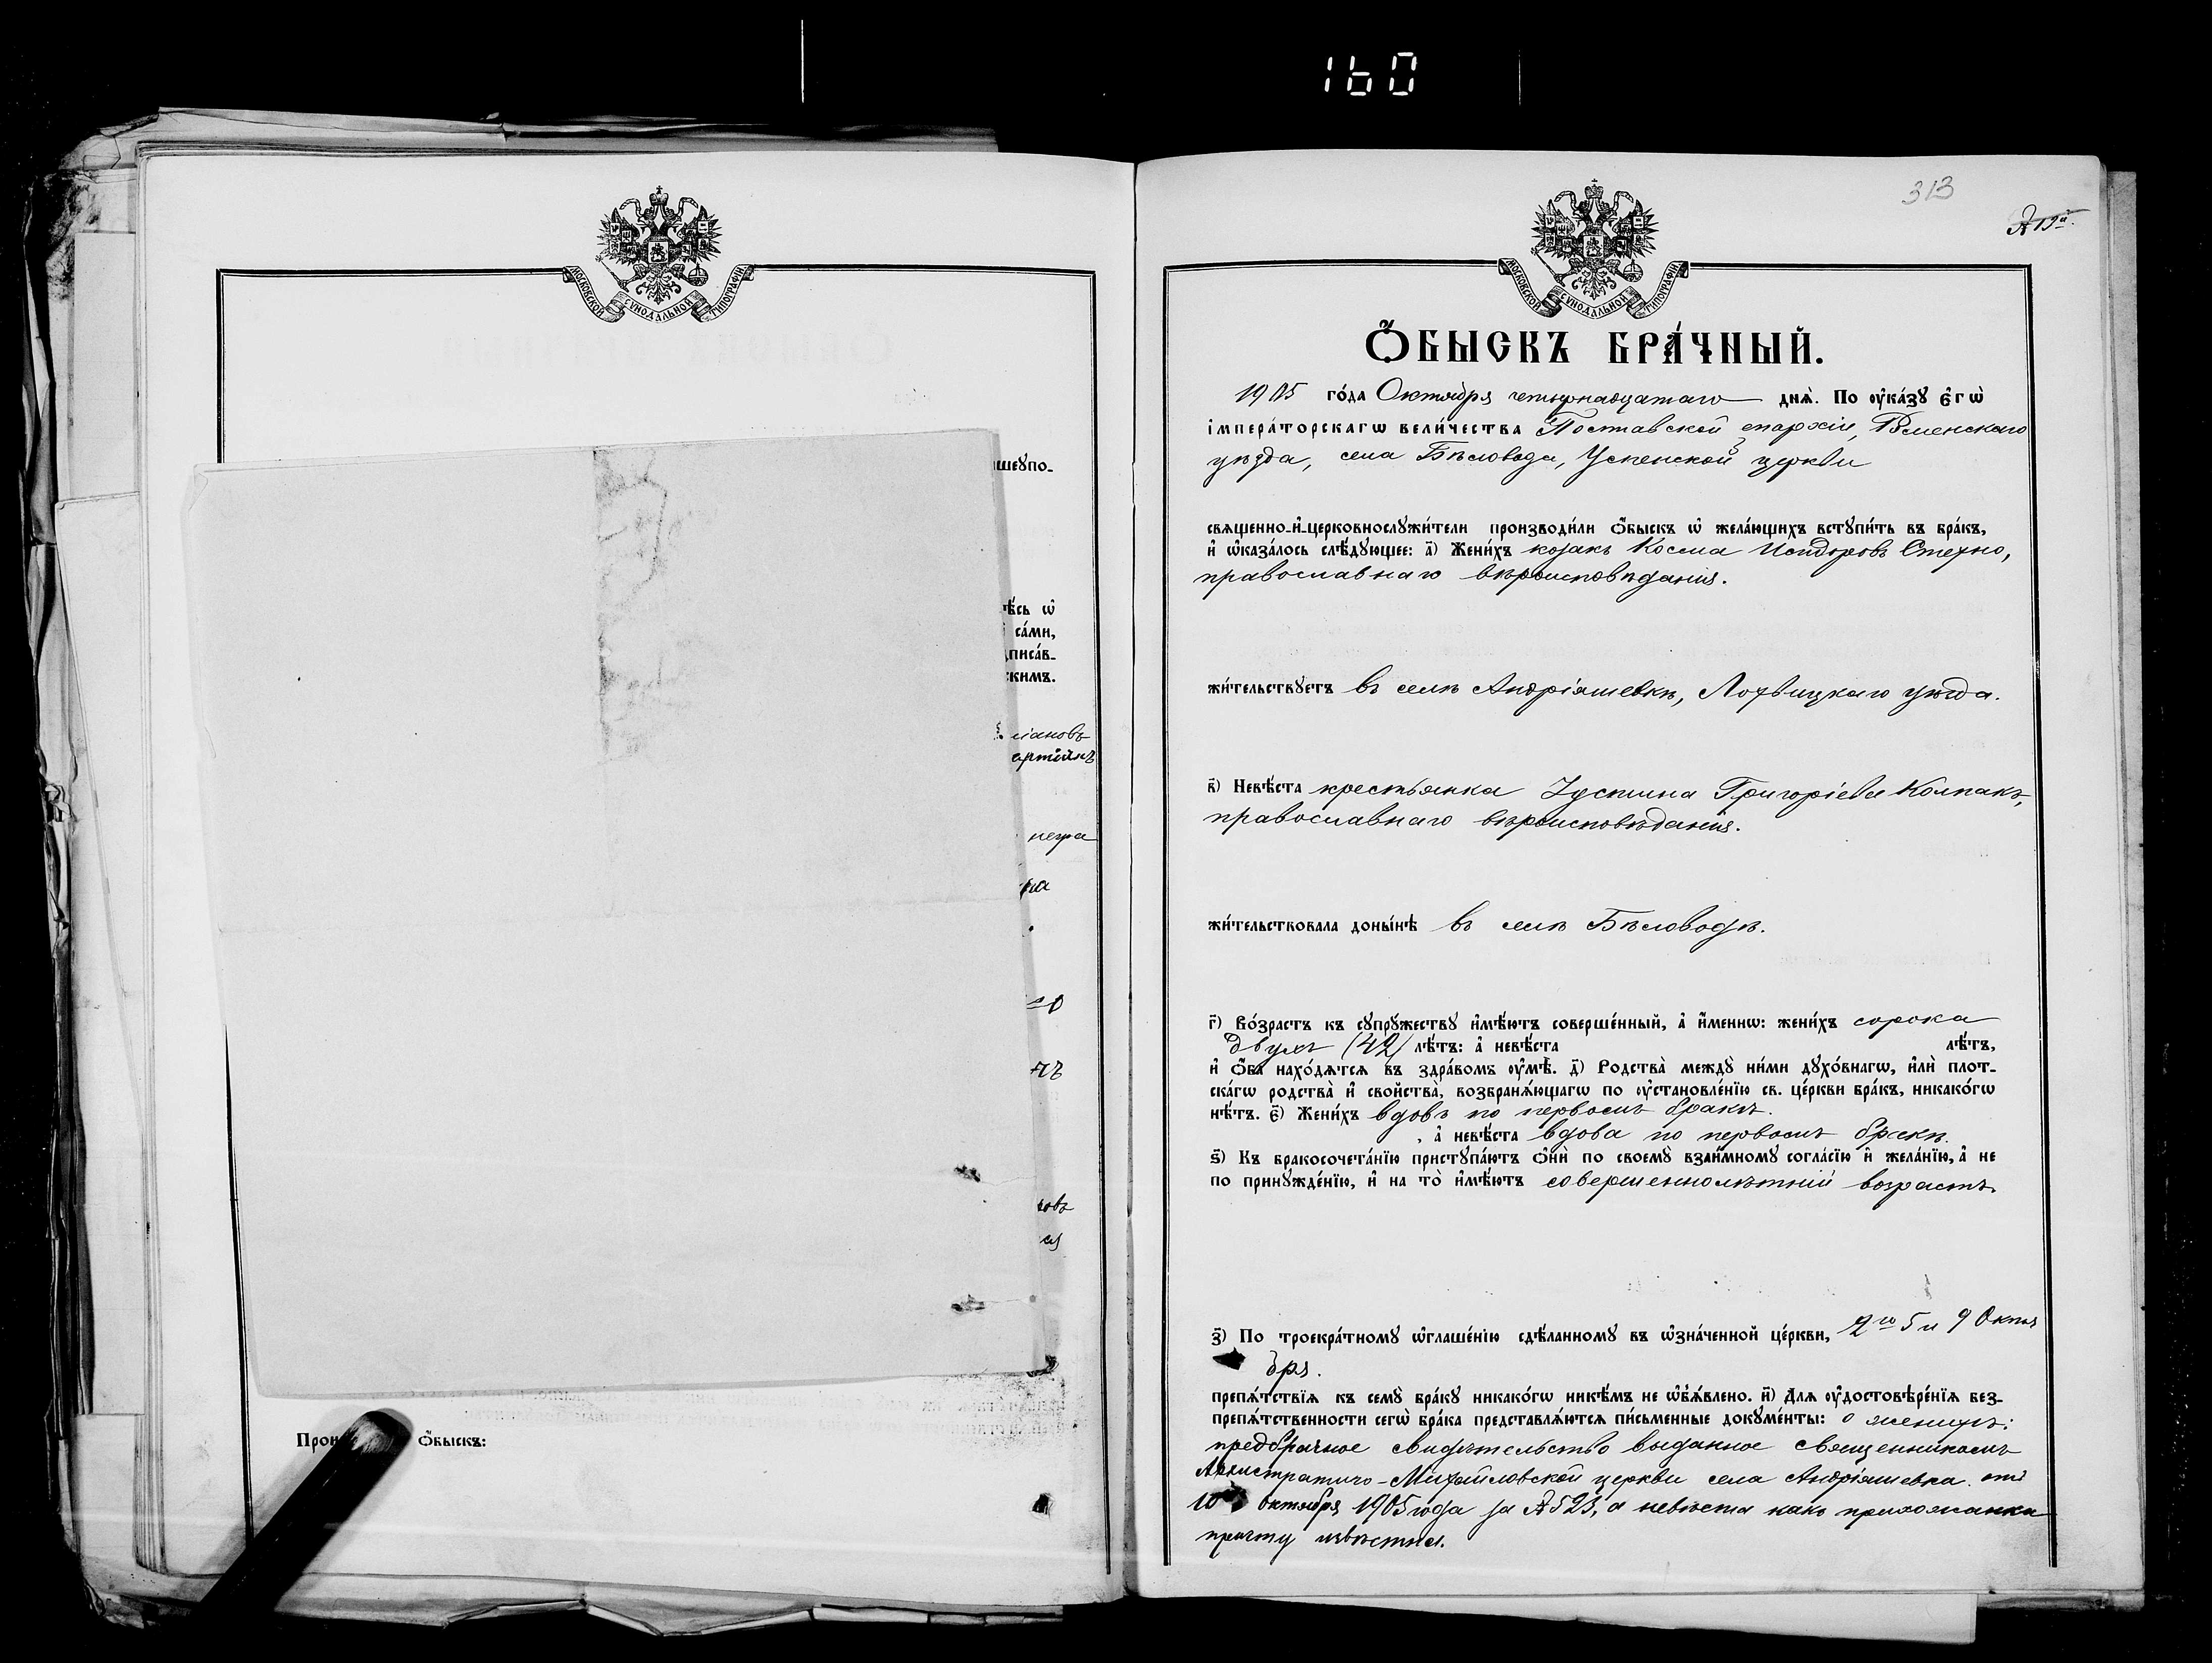 160
МОСКОВСКОЙ СѴНОДАЛЬНОЙ ТИПОГРАФІИ
шеꙋпо-
сь ѡ҆
са́ми,
писа́в-
скимъ.
ѡ҆быскъ:
313
№ 19й.
МОСКОВСКОЙ СѴНОДАЛЬНОЙ ТИПОГРАФІИ
Ѻ҆БЫСКЪ БРА́ЧНЫЙ.
1905 го́да Октября четырнадцатаго днѧ̀. По ᲂу҆ка́зꙋ є҆гѡ̀
і҆мпера́торскагѡ вели́чества Полтавской епархіи, Роменскаго
уѣзда, села Бѣловода, Успенской церкви
свѧщенно-и҆-церковнослꙋжи́тели производи́ли ѻ҆́быскъ ѡ҆ жела́ющихъ встꙋпи́ть въ бра́къ,
и҆ ѡ҆каза́лось слѣ́дꙋющее: а҃) Жени́хъ козакъ Косма Исидоровъ Стехно,
православнаго вѣроисповѣданія.
жи́тельствꙋетъ въ селѣ Андріяшевкѣ, Лохвицкаго уѣзда.
в҃) Невѣ́ста крестьянка Іустина Григоріева Колпакъ,
православнаго вѣроисповѣданія.
жи́тельствовала доны́нѣ въ селѣ Бѣловодѣ.
г҃) Во́зрастъ къ сꙋпрꙋжествꙋ и҆мѣ́ютъ соверше́нный, а҆ и҆́меннѡ: жени́хъ сорока
двухъ (42) лѣ́тъ: а҆ невѣ́ста лѣ́тъ,
и҆ ѻ҆́ба нахо́дѧтсѧ въ здра́вомъ ᲂу҆мѣ̀. д҃) Родства̀ междꙋ̀ ни́ми дꙋхо́внагѡ, и҆лѝ плот-
ска́гѡ родства̀ и҆ свойства̀, возбранѧ́ющагѡ по ᲂу҆становле́нїю св. це́ркви бра́къ, никако́гѡ
нѣ́тъ. є҃) Жени́хъ вдовъ по первомъ бракѣ.
, а҆ невѣ́ста вдова по первомъ бракѣ.
ѕ҃) Къ бракосочета́нїю пристꙋпа́ютъ ѻ҆нѝ по своемꙋ̀ взаи́мномꙋ согла́сїю и҆ жела́нїю, а҆ не
по принꙋжде́нїю, и҆ на то̀ и҆мѣ́ютъ совершеннолѣтній возрастъ.
з҃) По троекра́тномꙋ ѡ҆глаше́нію сдѣ́ланномꙋ въ ѡ҆зна́ченной це́ркви, 2го 5 и 9 Октя
бря.
препѧ́тствїѧ къ семꙋ̀ бра́кꙋ никако́гѡ никѣ́мъ не ѡ҆б̾ѧ́влено. и҃) Длѧ ᲂу҆достовѣре́нїѧ без-
препѧ́тственности сегѡ̀ бра́ка представлѧ́ютсѧ пи́сьменные докꙋме́нты: о женихѣ:
предбрачное свидѣтельство выданное священникомъ
Архистратиго-Михайловской церкви села Андріяшевка. отъ
10 октября 1905 года за № 523, а невѣста какъ прихожанка
причту извѣстна.